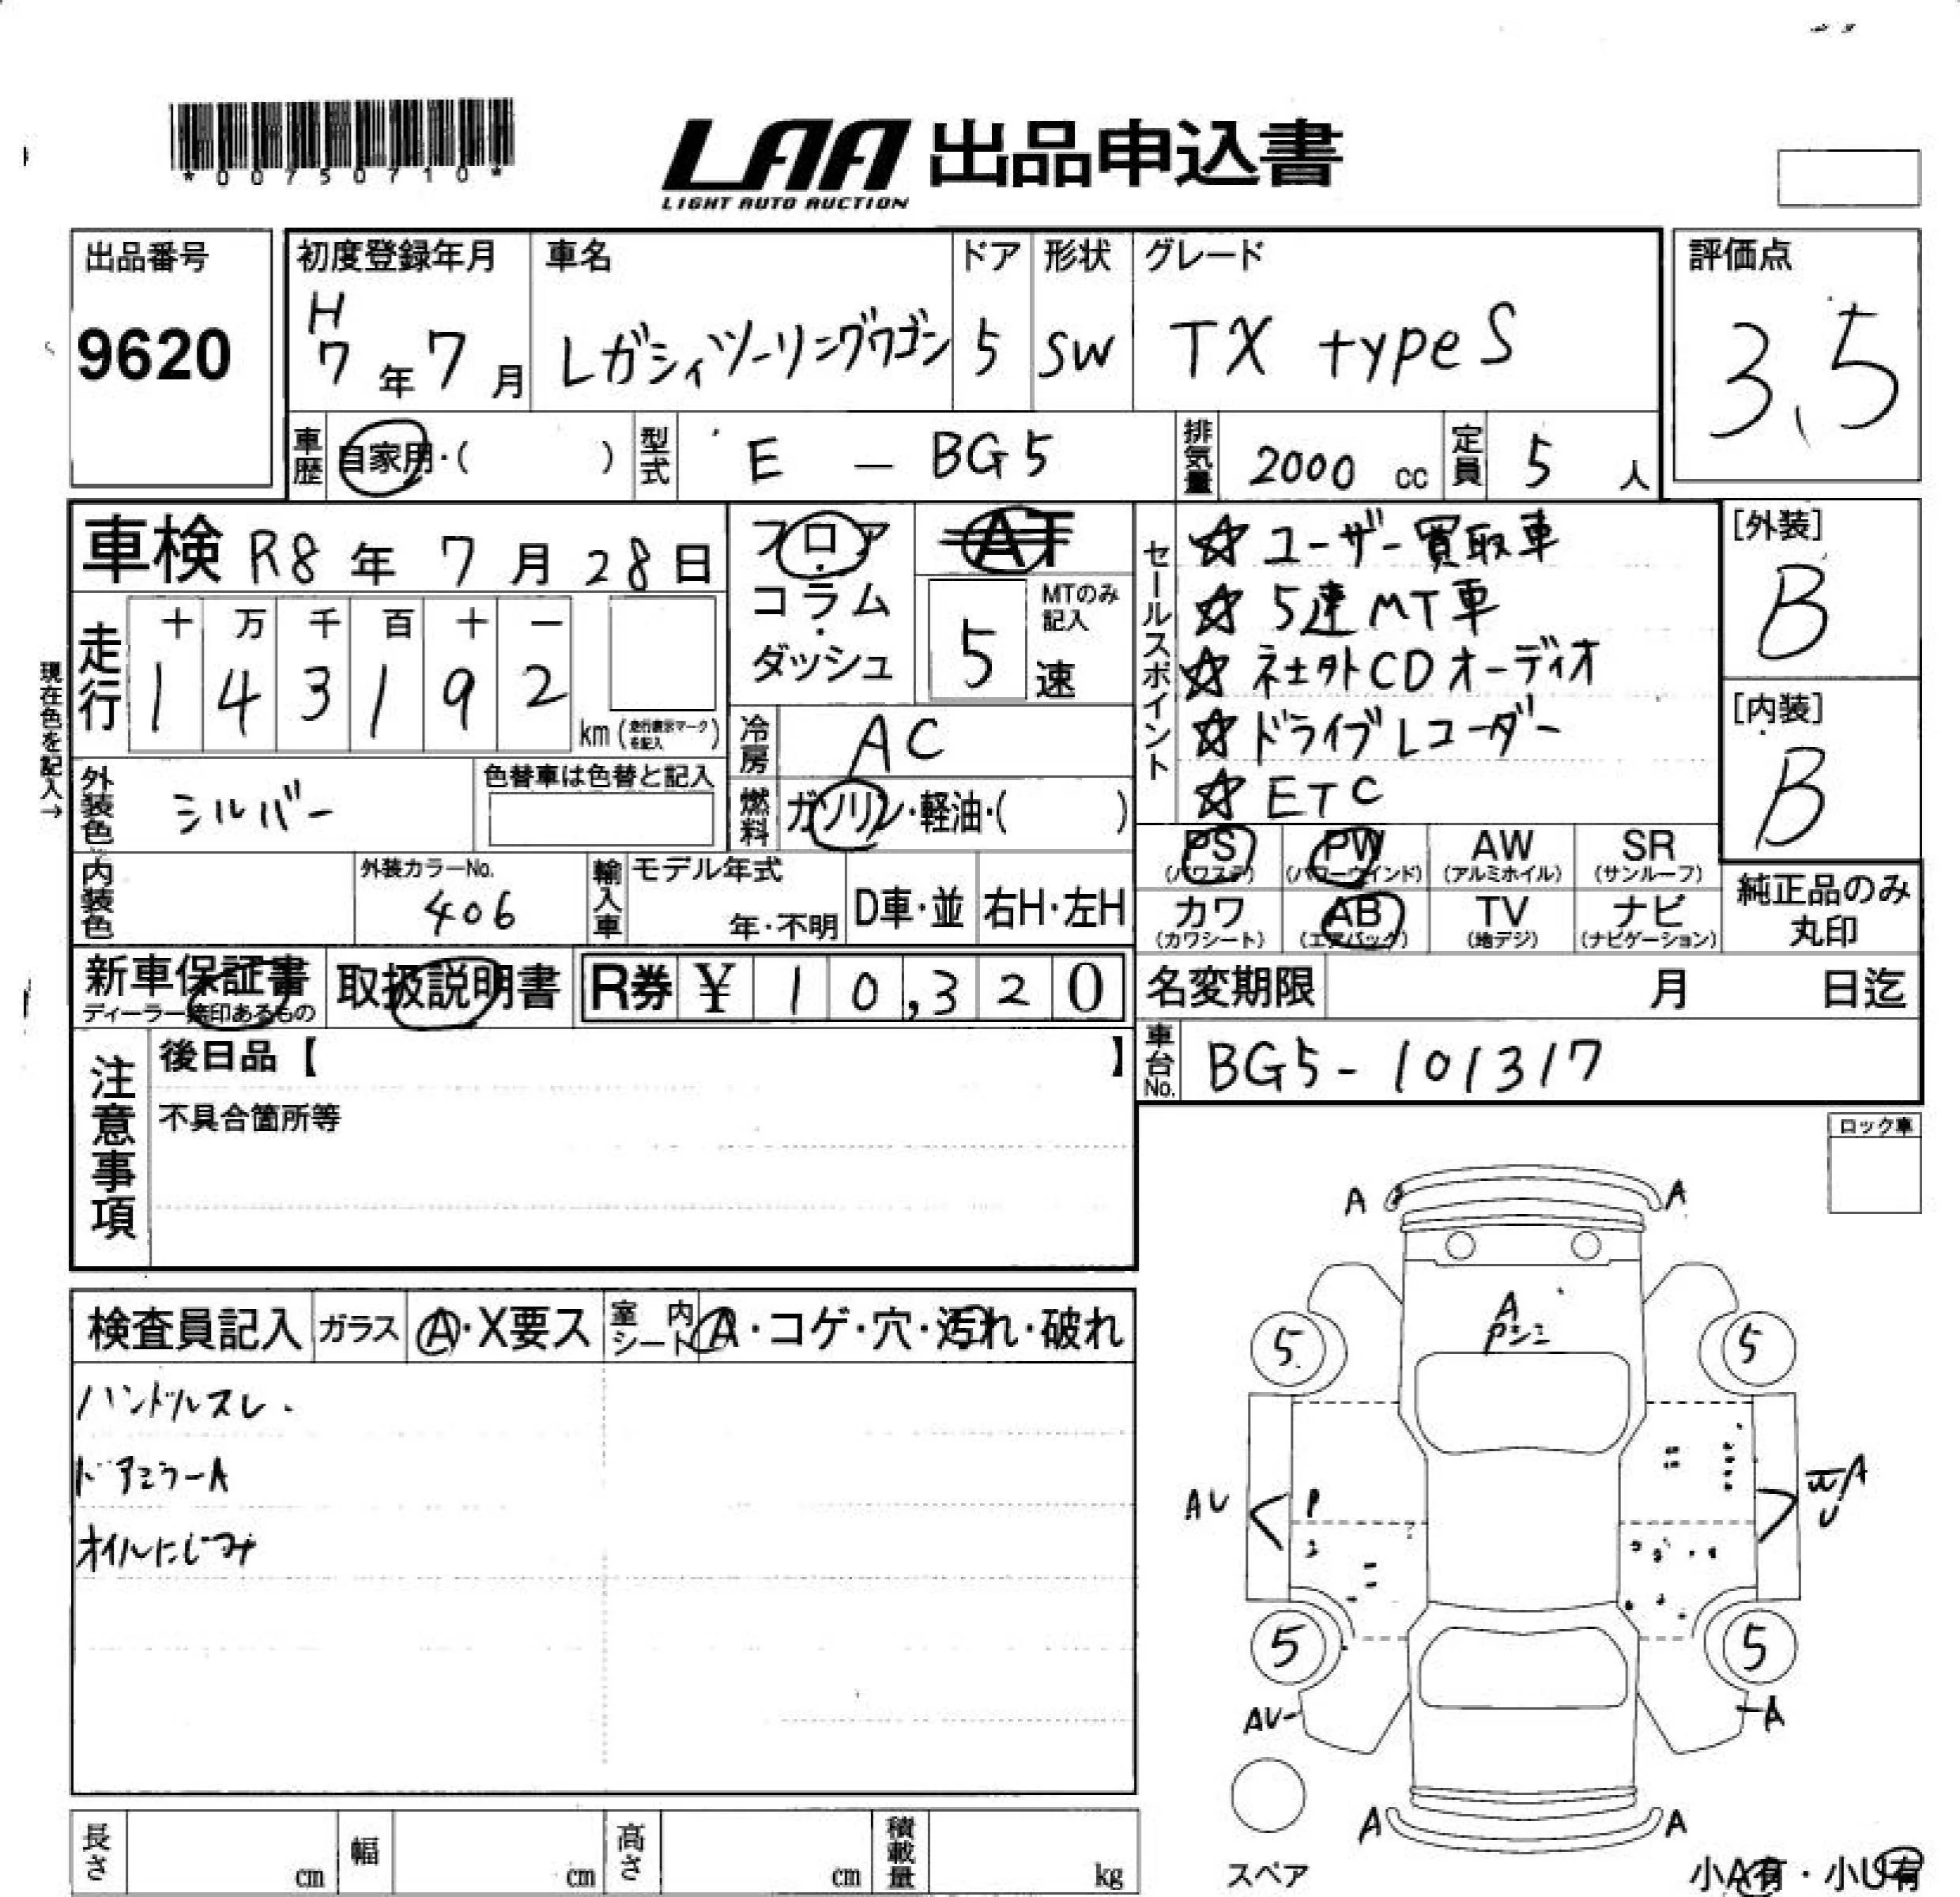 *00750710*
LAA 出品申込書
LIGHT AUTO AUCTION
出品番号
9620
初度登録年月
H
7年7月
車名
レガシィツーリングワゴン
ドア
5
形状
SW
グレード
TX typeS
評価点
3.5
車歴
自家用・( )
型式
E — BG5
排気量
2000 cc
定員
5 人
車検 R8年 7月 28日
走行
十 万 千 百 十 一
1 4 3 1 9 2
km (走行表示マークを記入)
現在色を記入→
外装色
シルバー
色替車は色替と記入
内装色
外装カラーNo.
406
フロア・コラム・ダッシュ
AT
MTのみ記入
5 速
冷房
AC
燃料
ガソリン・軽油・( )
輸入車
モデル年式
年・不明
D車・並
右H・左H
セールスポイント
☆ ユーザー買取車
☆ 5速MT車
☆ 社外CDオーディオ
☆ ドライブレコーダー
☆ ETC
[外装]
B
[内装]
B
PS (パワステ)
PW (パワーウインド)
AW (アルミホイル)
SR (サンルーフ)
カワ (カワシート)
AB (エアバック)
TV (地デジ)
ナビ (ナビゲーション)
純正品のみ丸印
新車保証書
ディーラー捺印あるもの
取扱説明書
R券 ¥ 10,320
名変期限 月 日迄
車台No.
BG5-101317
注意事項
後日品【 】
不具合箇所等
ロック車
検査員記入
ガラス
A・X要ス
室内シート
A・コゲ・穴・汚れ・破れ
ハンドルスレ.
ドアミラーA
オイルにじみ
A A
A
5 5
AU
P
5 5
AU
A
A A
スペア
小A有・小U有
長さ cm
幅 cm
高さ cm
積載量 kg